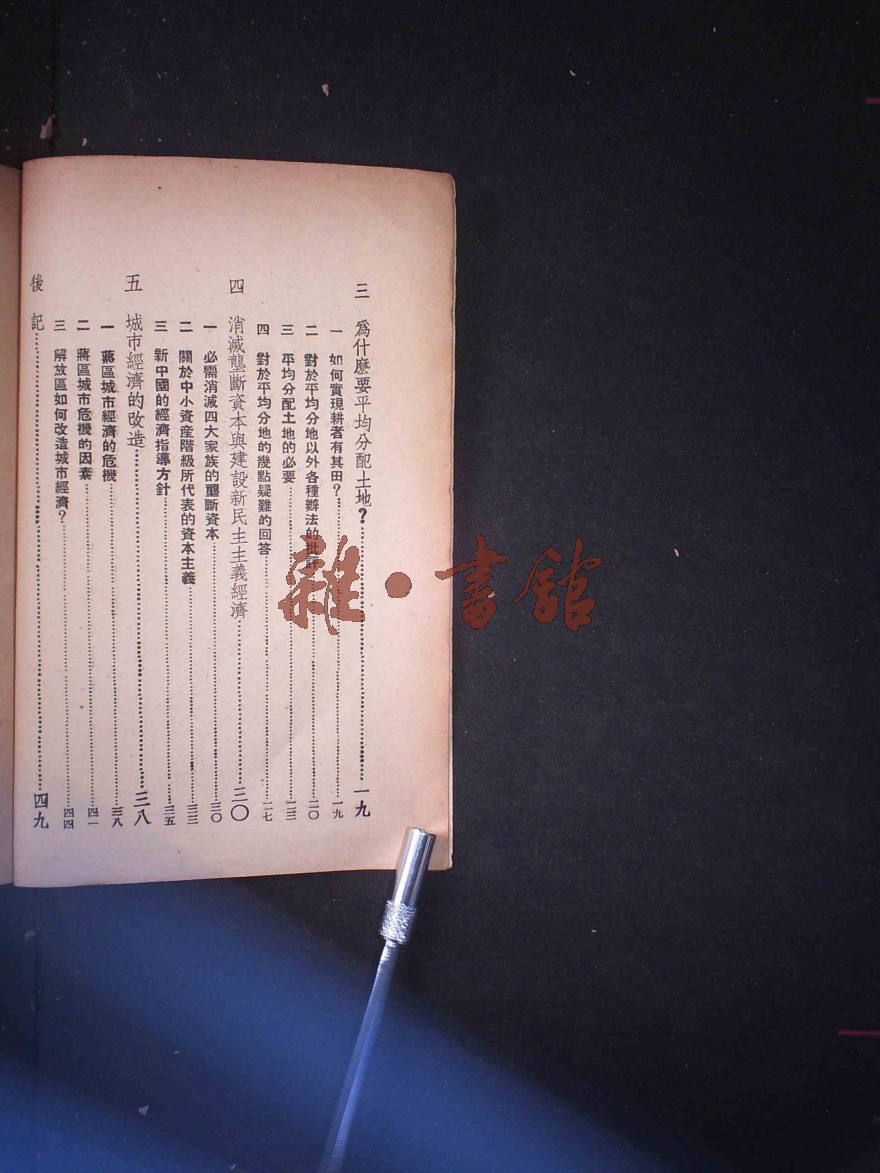 三 爲什麽要平均分配土地？……一九
一 如何實現耕者有其田？……一九
二 對於平均分地以外各種辦法的批評……二〇
三 平均分配土地的必要……二三
四 對於平均分地的幾點疑難的回答……二七
四 消滅壟斷資本與建設新民主主義經濟……三〇
一 必需消滅四大家族的壟斷資本……三〇
二 關於中小資産階級所代表的資本主義……三三
三 新中國的經濟指導方針……三五
五 城市經濟的改造……三八
一 蔣區城市經濟的危機……三八
二 蔣區城市危機的因素……四一
三 解放區如何改造城市經濟？……四四
後記……四九
雜·書館